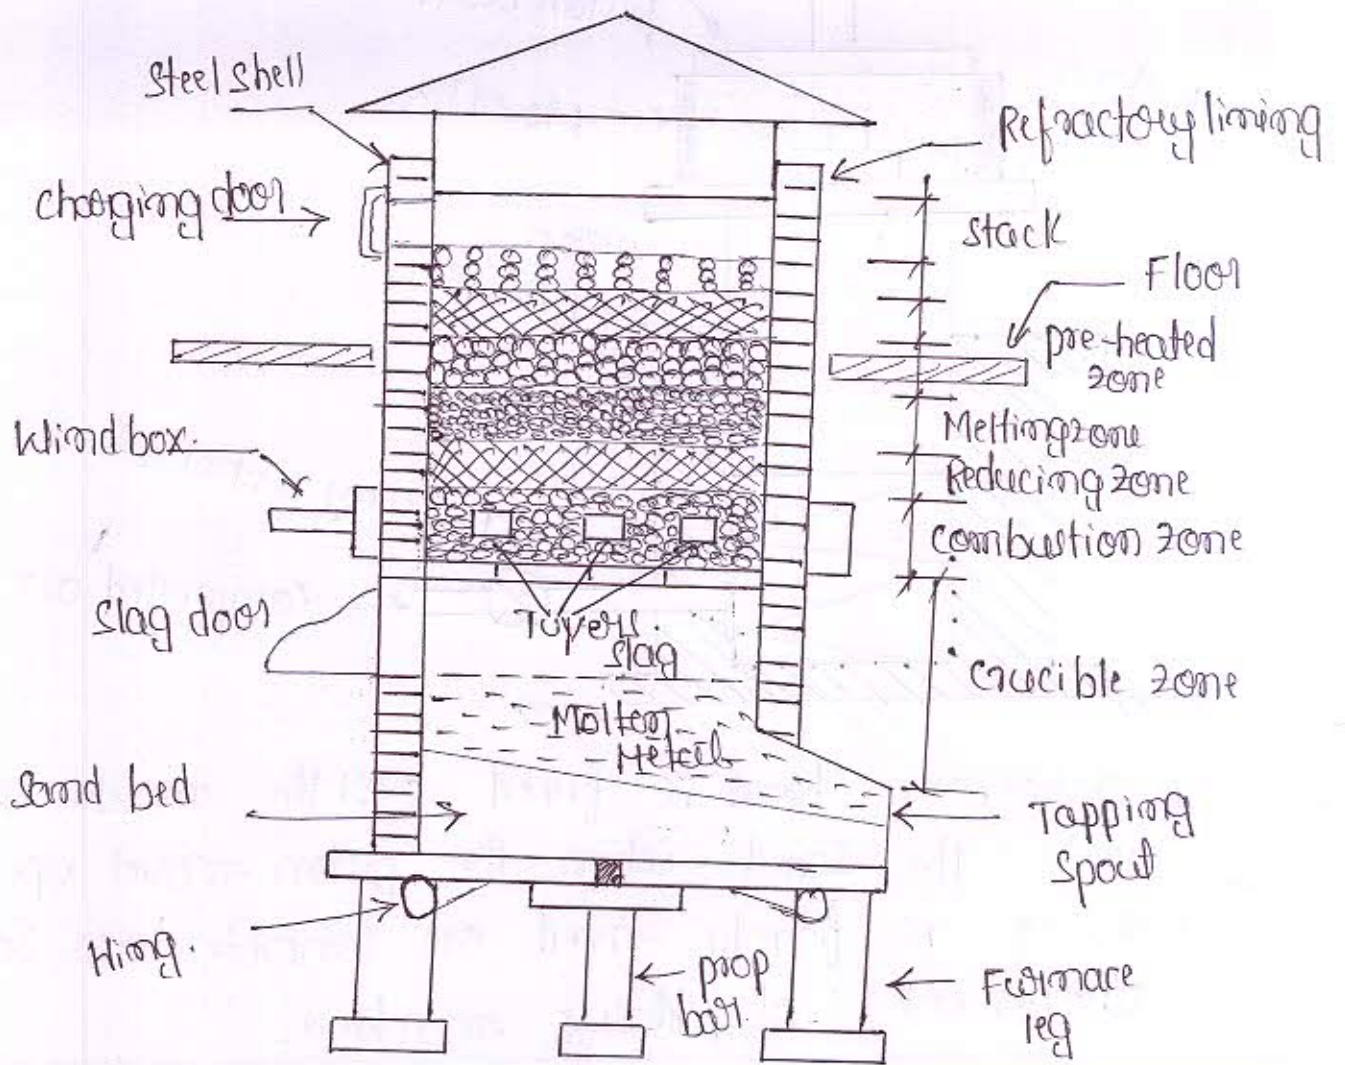 Steel shell
Refractory lining
charging door
stack
Floor
pre-heated
zone
Wind box.
Melting zone
Reducing zone
Combustion zone
Slag door
Tuyers.
slag
Crucible zone
Molten
Metal
Sand bed
Tapping
Spout
Hing.
prop
bar
Furnace
leg